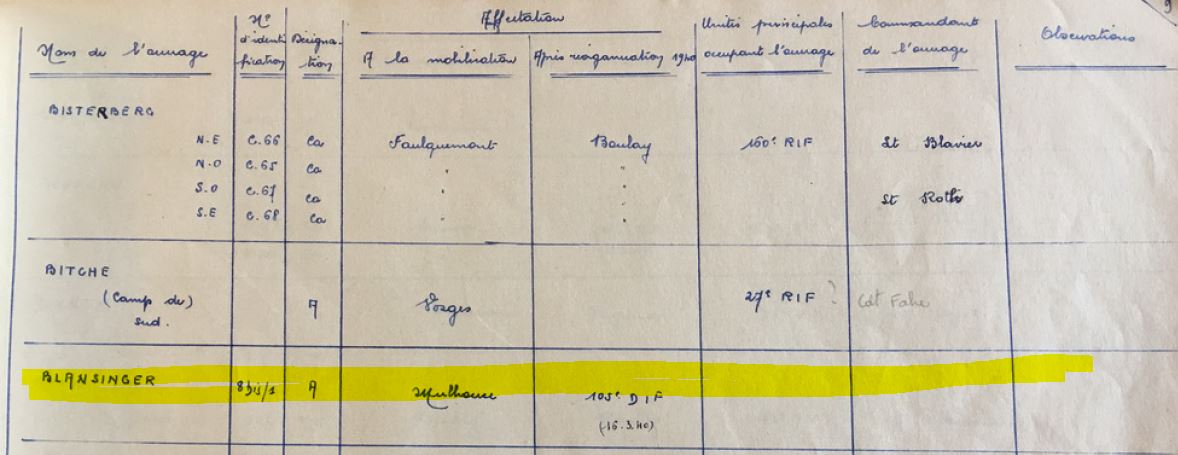 9
Noms de l'ouvrage | N° d'identification | Désignation | Affectation | Unités principales occupant l'ouvrage | Commandant de l'ouvrage | Observations
A la mobilisation | Après réorganisation 1940
BISTERBERG
N.E | C.66 | Ca | Faulquemont | Boulay | 160e RIF | Lt Blavier
N.O | C.65 | Ca | " | "
S.O | C.67 | Ca | " | " | Lt Roth
S.E | C.68 | Ca | " | "
BITCHE
(Camp de) | A | Vosges | 27e RIF ? | Cdt Fahe
sud.
BLANSINGER | 8 bis/1 | A | Mulhouse | 105e DIF
(-16.3.40)